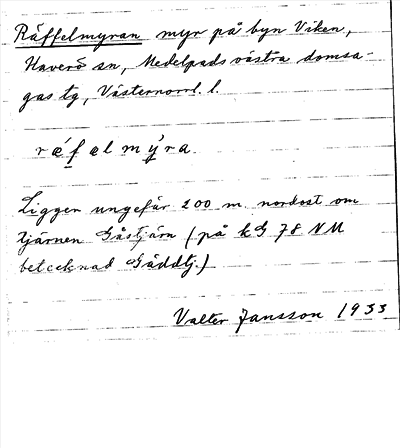 Räffelmyran myr på byn Viken,
Haverö sn, Medelpads västra domsa-
gas tg, Västernorrl. l.
ræ´fælmy`ra.
Ligger ungefär 200 m. nordost om
tjärnen Gåstjärn (på kG 78 NM
betecknad Gäddtj.)
Valter Jansson 1933